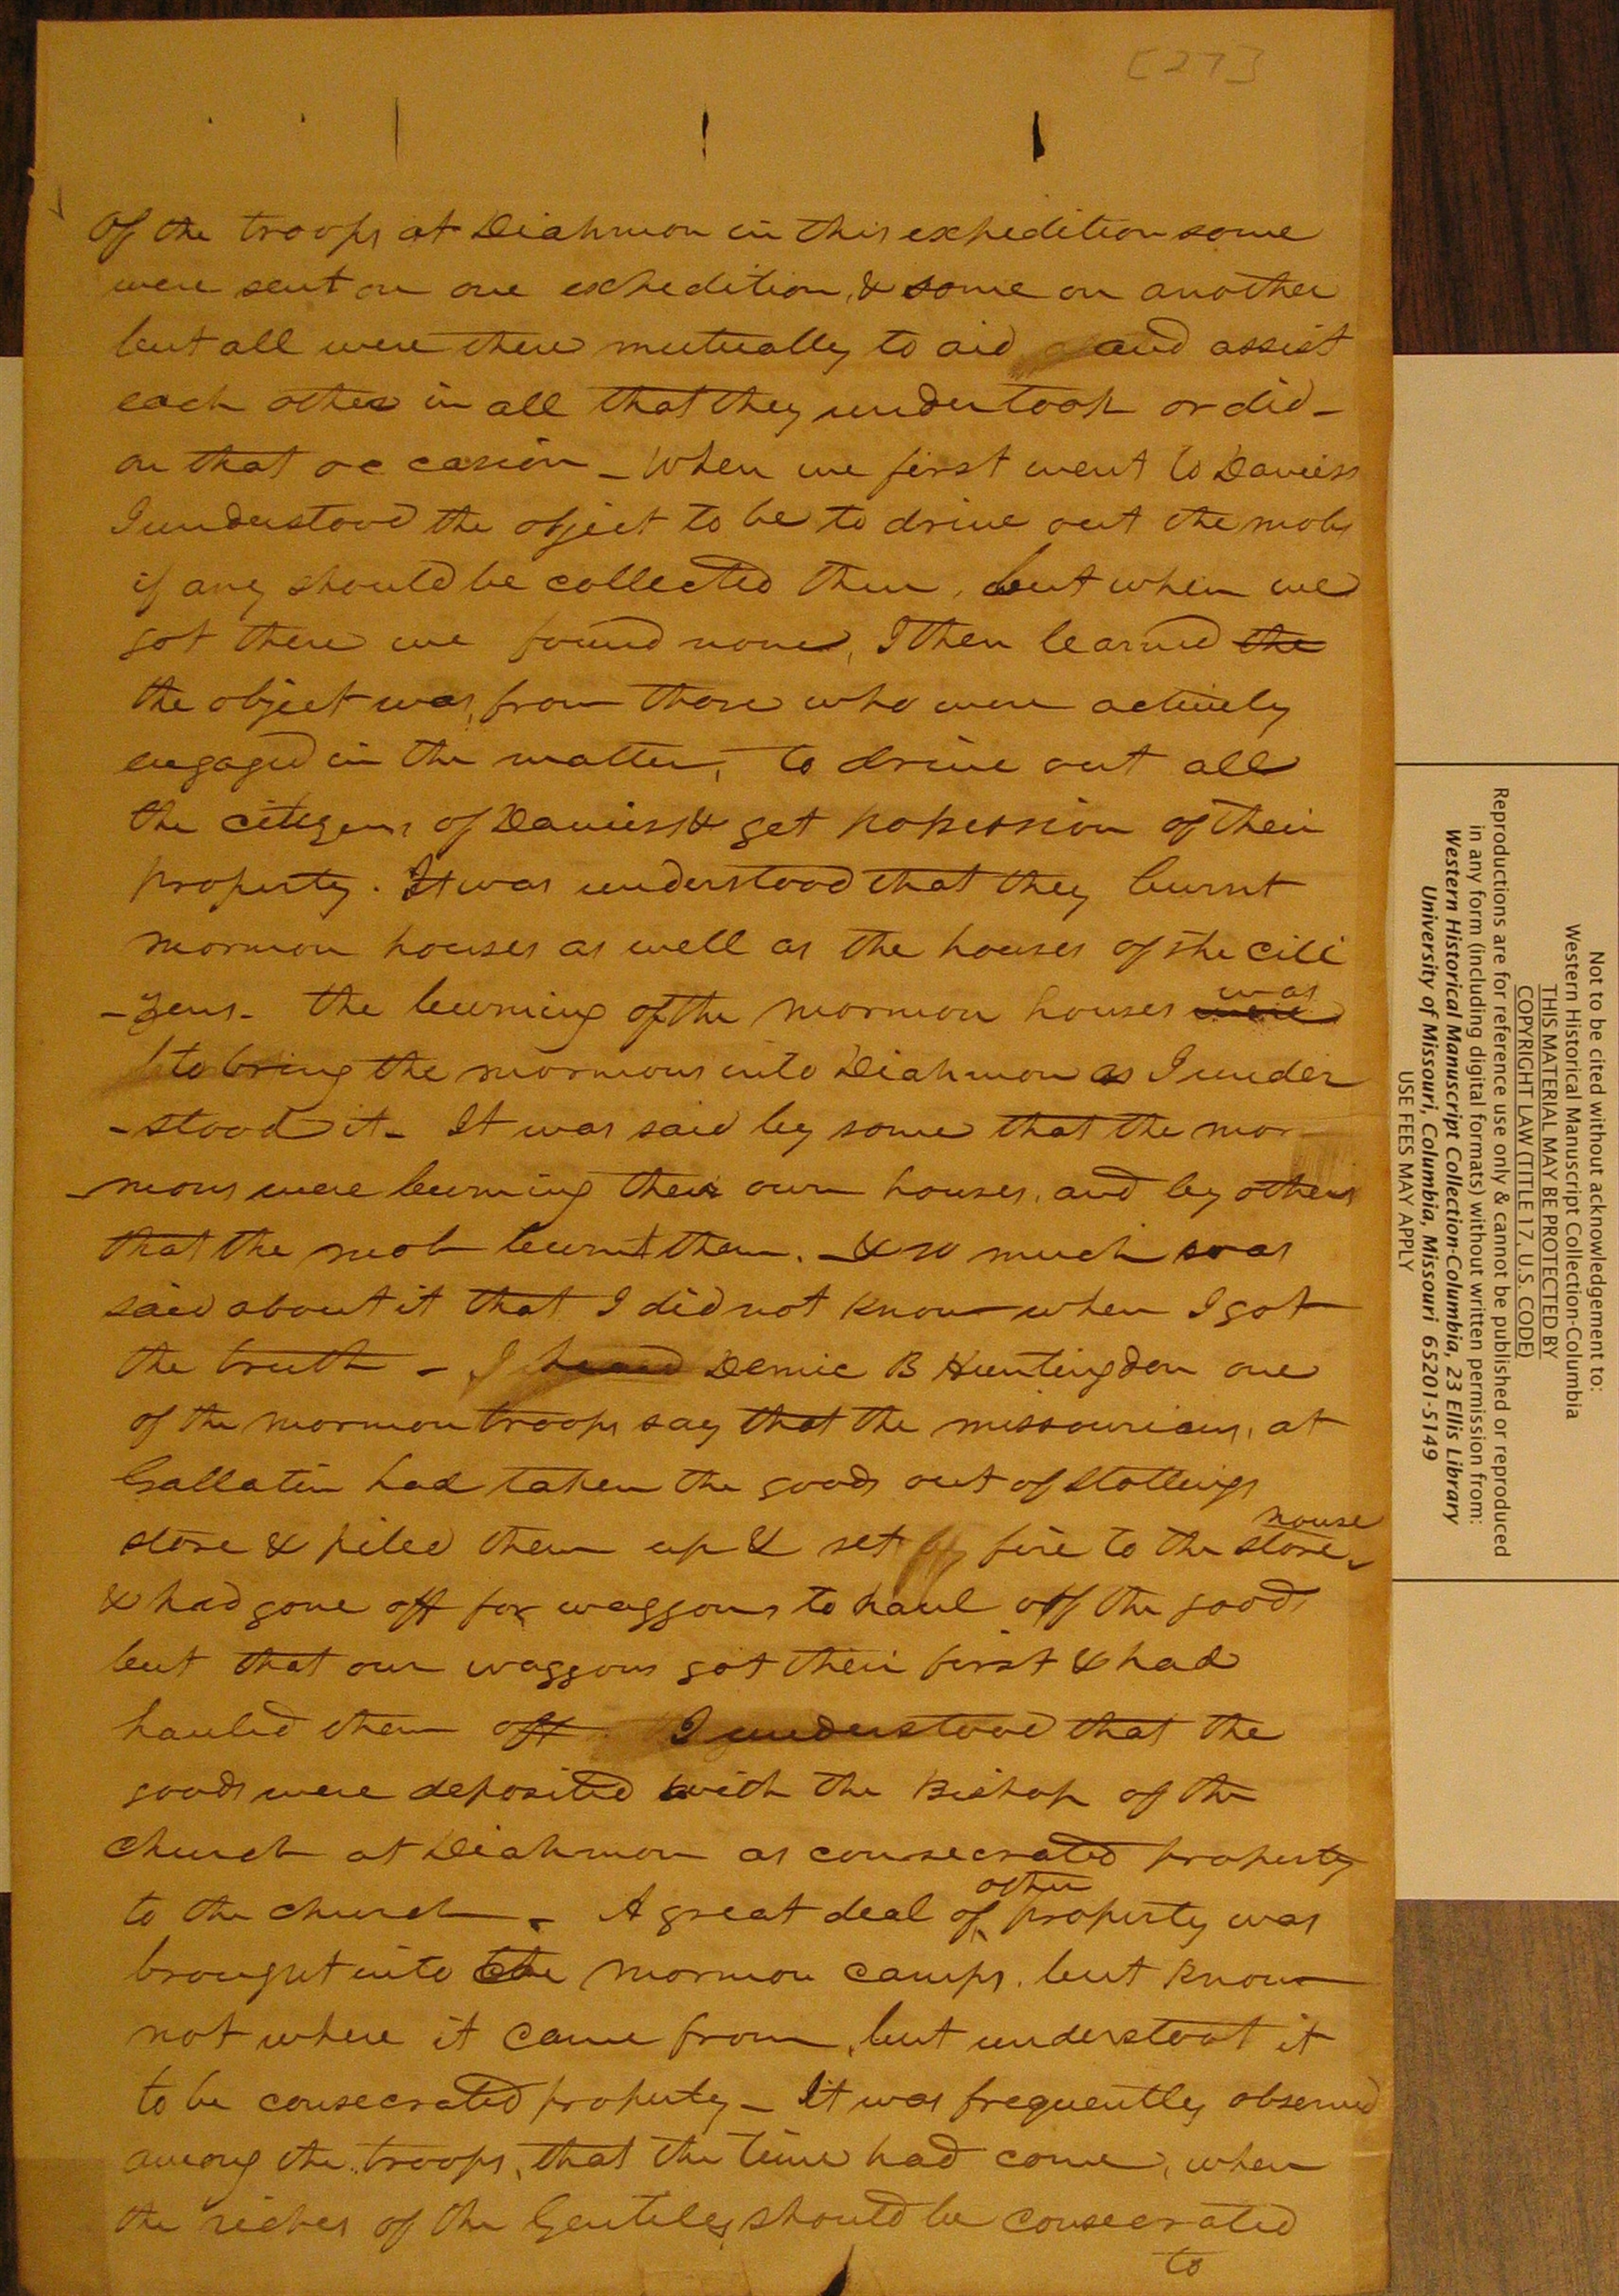 [27]
Of the troops at Diahmon in this expedition some
were sent on one expedition, & some on another
but all were there mutually to aid and assist
each other in all that they undertook or did -
on that occasion - When we first went to Daviess
I understood the object to be to drive out the mobs
if any should be collected there, but when we
got there we found none, I then learned the
the object was, from those who were actively
engaged in the matter, to drive out all
the citizens of Daviess & get possession of their
property. It was understood that they burnt
mormon houses as well as the houses of the citi
-zens - the burning of the mormon houses were was
to bring the mormons into Diahmon as I under
-stood it - It was said by some that the mor
-mons were burning their own houses, and by others
that the mob burnt them. - & so much was
said about it that I did not know when I got
the truth - I heard Demic B Huntingdon one
of the mormon troops say that the missourians, at
Gallatin had taken the goods out of Stollings
store & piled them up & set fire to the store house
& had gone off for waggons to haul off the goods
but that our waggons got their first & had
hauled them off I understood that the
goods were deposited with the Bishop of the
Church at Diahmon as consecrated property
to the church - A great deal of other property was
brought into the mormon camps, but know
not where it came from, but understoot it
to be consecrated property - It was frequently observed
among the troops, that the time had come, when
the riches of the Gentiles should be consecrated
to
Not to be cited without acknowledgement to:
Western Historical Manuscript Collection-Columbia
THIS MATERIAL MAY BE PROTECTED BY
COPYRIGHT LAW (TITLE 17, U.S. CODE)
Reproductions are for reference use only & cannot be published or reproduced
in any form (including digital formats) without written permission from:
Western Historical Manuscript Collection-Columbia, 23 Ellis Library
University of Missouri, Columbia, Missouri 65201-5149
USE FEES MAY APPLY